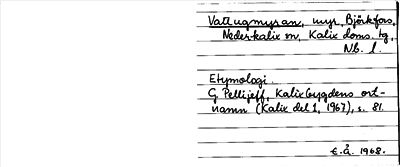 Vattugmyran, myr, Björkfors,
Nederkalix sn, Kalix doms. tg,
Nb. l.
Etymologi.
G. Pellijeff, Kalixbygdens ort-
namn (Kalix del 1, 1967), s. 81.
E. Å. 1968.